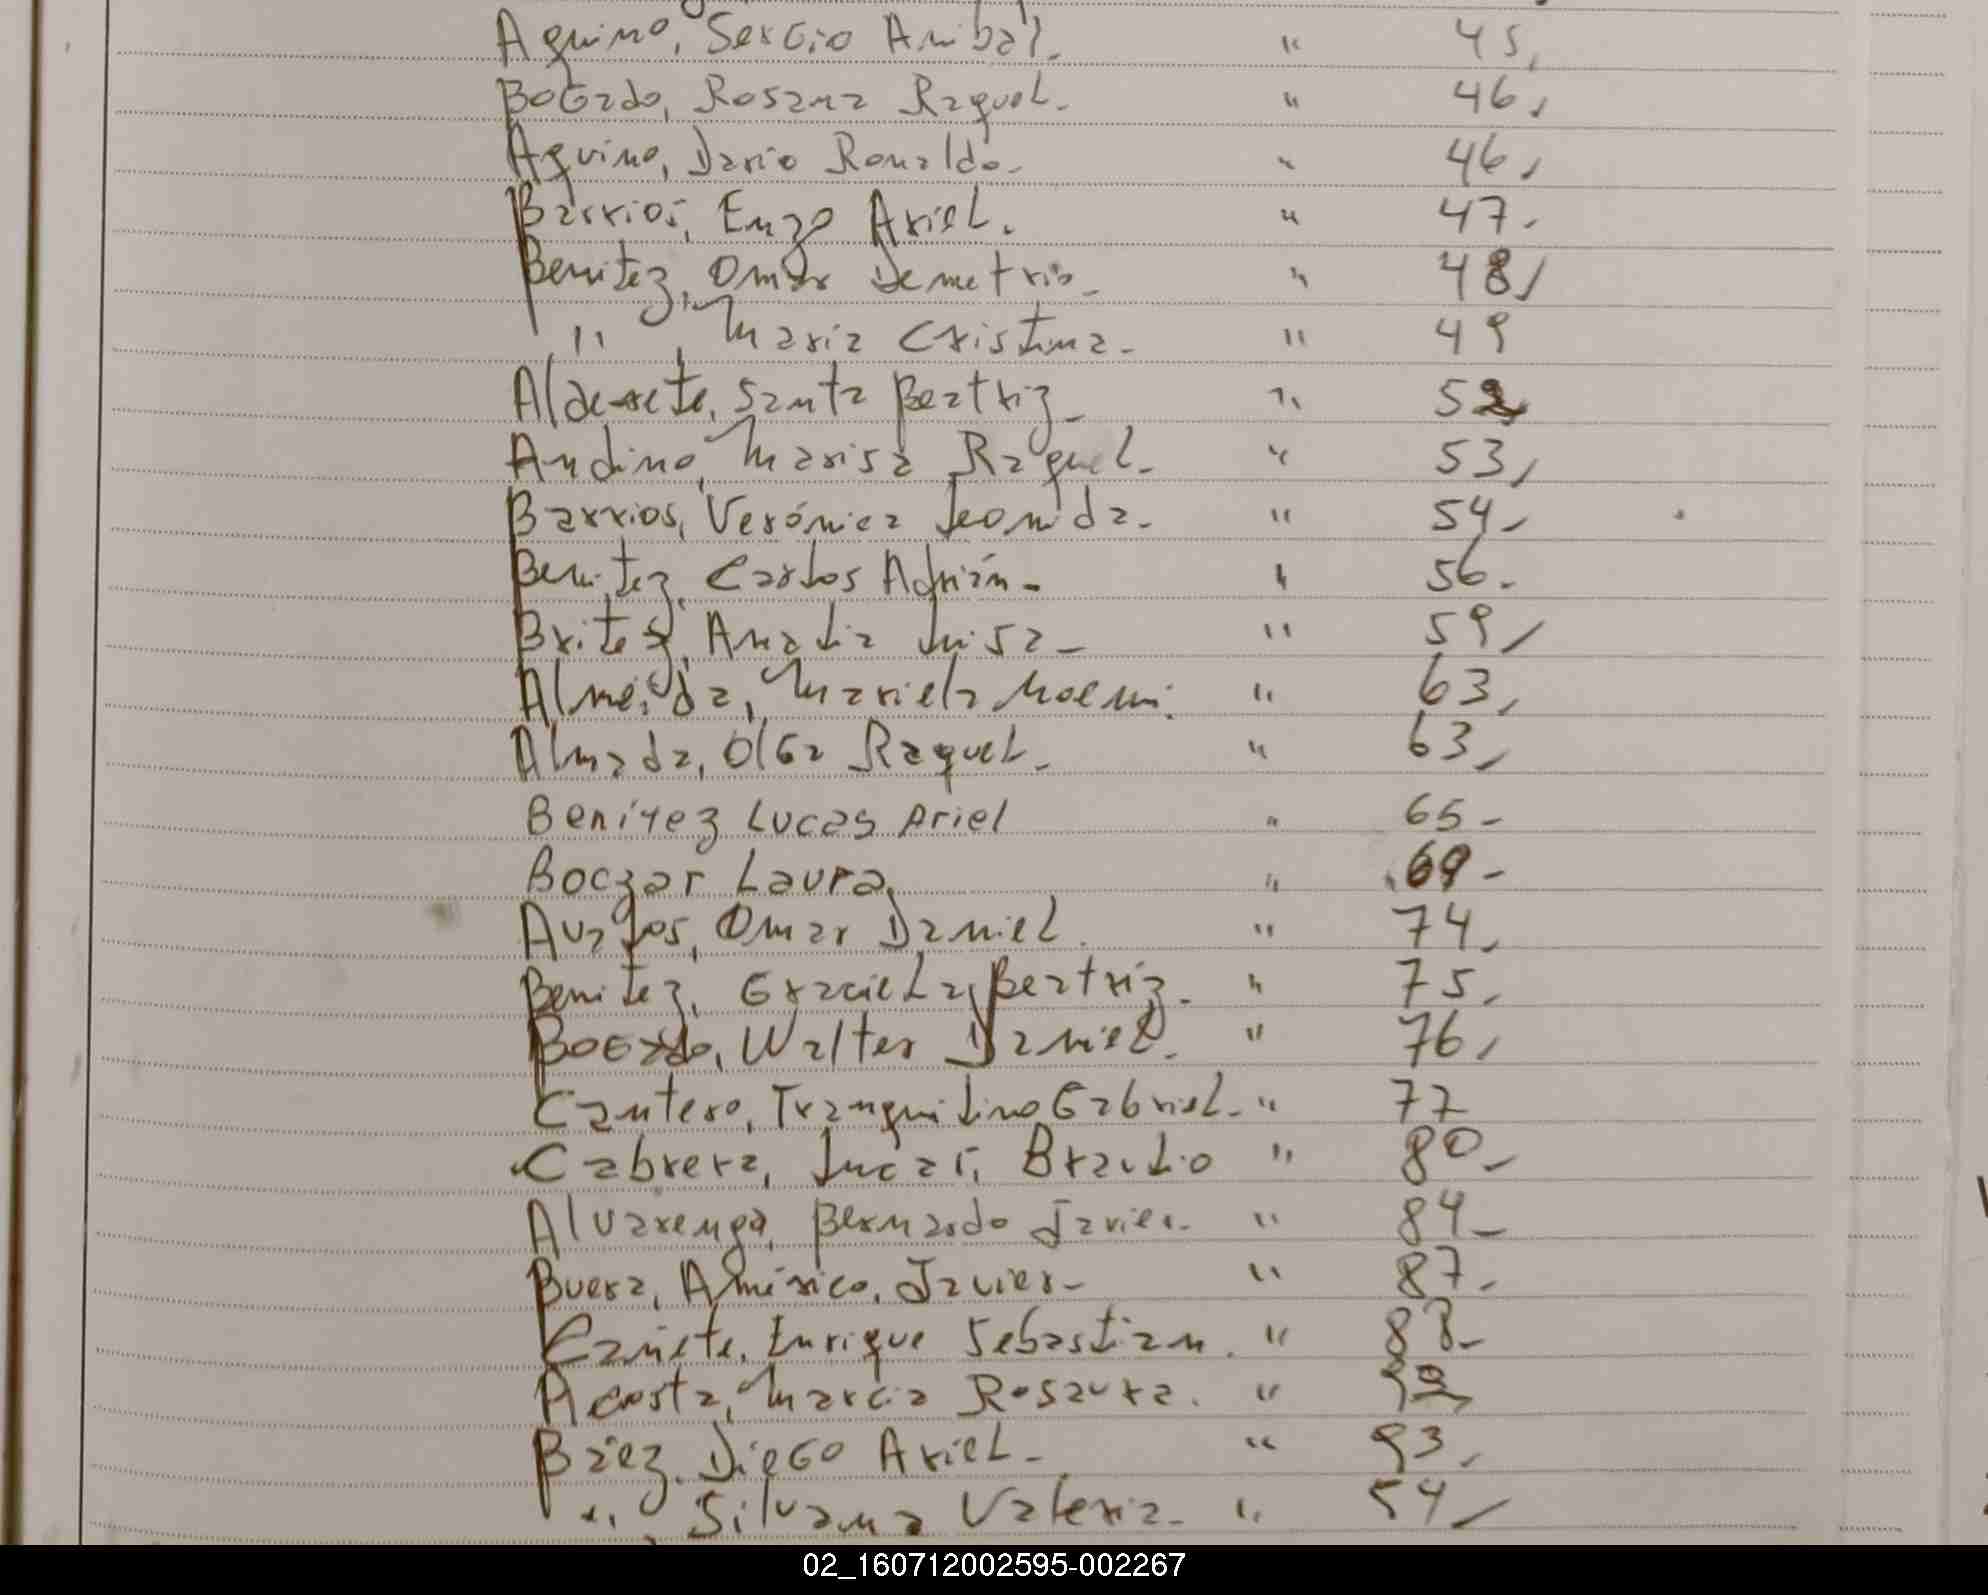 Aquino, Sergio Anibal. " 45,
Bogado, Rosana Raquel. " 46,
Aquino, Dario Ronaldo. " 46,
Barrios, Enzo Ariel. " 47.
Benitez, Omar Demetrio. " 48,
" , Maria Cristina. " 49
Alderete, Santa Beatriz. " 52
Andino, Marisa Raquel. " 53,
Barrios, Verónica Leonida. " 54,
Benitez, Carlos Adrián. " 56.
Britez, Analia Luisa. " 59,
Almeida, Mariela Noemi. " 63,
Almada, Olga Raquel. " 63,
Benítez Lucas Ariel " 65-
Boczar Laura. " 69-
Avalos, Omar Daniel. " 74,
Benitez, Graciela Beatriz. " 75,
Bogado, Walter Daniel. " 76,
Cantero, Tranquilino Gabriel. " 77
Cabrera, Lucas, Braulio " 80,
Alvarenga, Bernardo Javier. " 84-
Buera, Américo, Javier- " 87.
Cañete, Enrique Sebastian. " 88-
Acosta, Marcia Rosaura. "
Báez, Diego Ariel. " 93,
" , Silvana Valeria. "
02_160712002595-002267